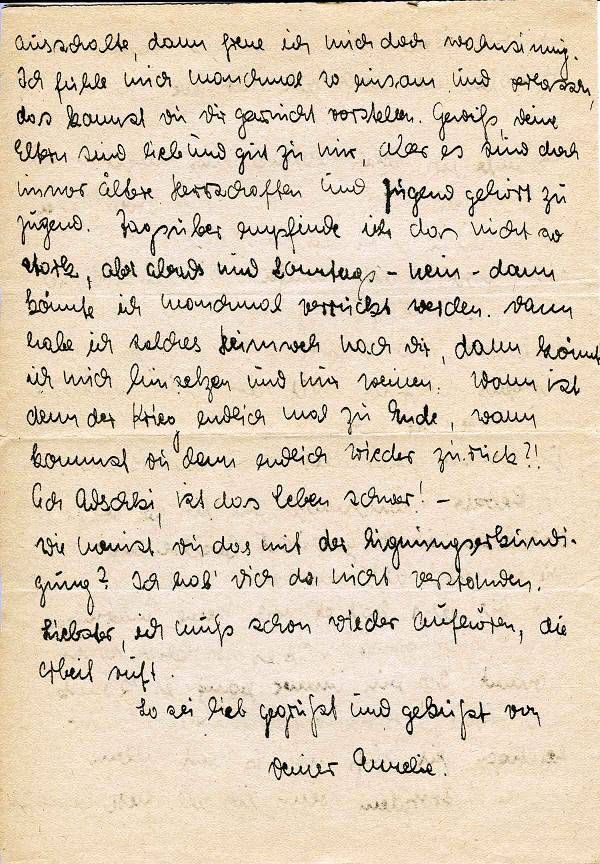 ausschalte, dann freue ich mich doch wahnsinnig.
Ich fühle mich manchmal so einsam und verlassen,
das kannst du dir garnicht vorstellen. Gewiß, deine
Eltern sind lieb und gut zu mir, aber es sind doch
immer ältere Herrschaften und Jugend gehört zu
Jugend. Tagsüber empfinde ich das nicht so
stark, aber abends und Sonntags – nein – dann
könnte ich manchmal verrückt werden. Dann
habe ich solches Heimweh nach dir, dann könnt
ich mich hinsetzen und nur weinen. Wann ist
denn der Krieg endlich mal zu Ende, wann
kommst du denn endlich wieder zurück?!
Ach Adschki, ist das Leben schwer! –
Wie meinst du das mit der Eignungserkundi-
gung? Ich hab' dich da nicht verstanden.
Liebster, ich muß schon wieder aufhören, die
Arbeit ruft.
So sei lieb gegrüßt und geküßt von
deiner Aurelie.